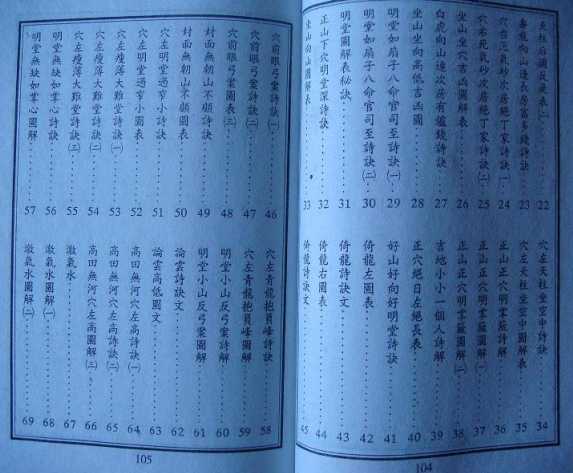 穴右正氣砂水房絕丁家詩訣(一) 24
穴右死氣砂水房絕丁家詩訣(二) 25
坐山坐穴吉凶圖解表 26
白虎向山邊次房有爐錢詩訣 27
坐山坐向高低吉凶圖 28
明堂如扇子八命官司至詩訣(一) 29
明堂如扇子八命官司至詩訣(二) 30
明堂圖解表秘訣 31
正山下穴明堂深詩訣 32
坐山向山圖解表 33
穴左天柱坐空中詩訣 34
穴左天柱坐空中圖解表 35
正山正穴明掌蔽詩解 36
正山正穴明掌蔽圖解(一) 37
正山正穴明掌蔽圖解(二) 38
吉地小小一個人詩解 39
正穴絕日左絕長表 40
好山好向好明堂詩訣 41
倚龍左圖表 42
倚龍詩訣文 43
倚龍右圖表 44
倚龍詩訣文 45
104
穴前眼弓案詩訣(一) 46
穴前眼弓案詩訣(二) 47
穴前眼弓案圖表(三) 48
封面無朝山不顧詩訣 49
封面無朝山不顧圖表 50
穴左明堂過窄小詩訣 51
穴左明堂過窄小圖表 52
穴左瘦薄大難堂詩訣(一) 53
穴左瘦薄大難堂詩訣(二) 54
穴左瘦薄大難堂詩訣(三) 55
明堂無缺如掌心詩訣 56
明堂無缺如掌心圖解 57
穴左青龍抱員峰詩訣 58
穴左青龍抱員峰圖解 59
明堂小山反弓案詩解 60
明堂小山反弓案圖解 61
論雲詩訣文 62
論雲高低圖文 63
高田無河穴左高詩訣(一) 64
高田無河穴左高詩訣(二) 65
高田無河穴左高圖解(三) 66
激氣水 67
激氣水圖解(一) 68
激氣水圖解(二) 69
105